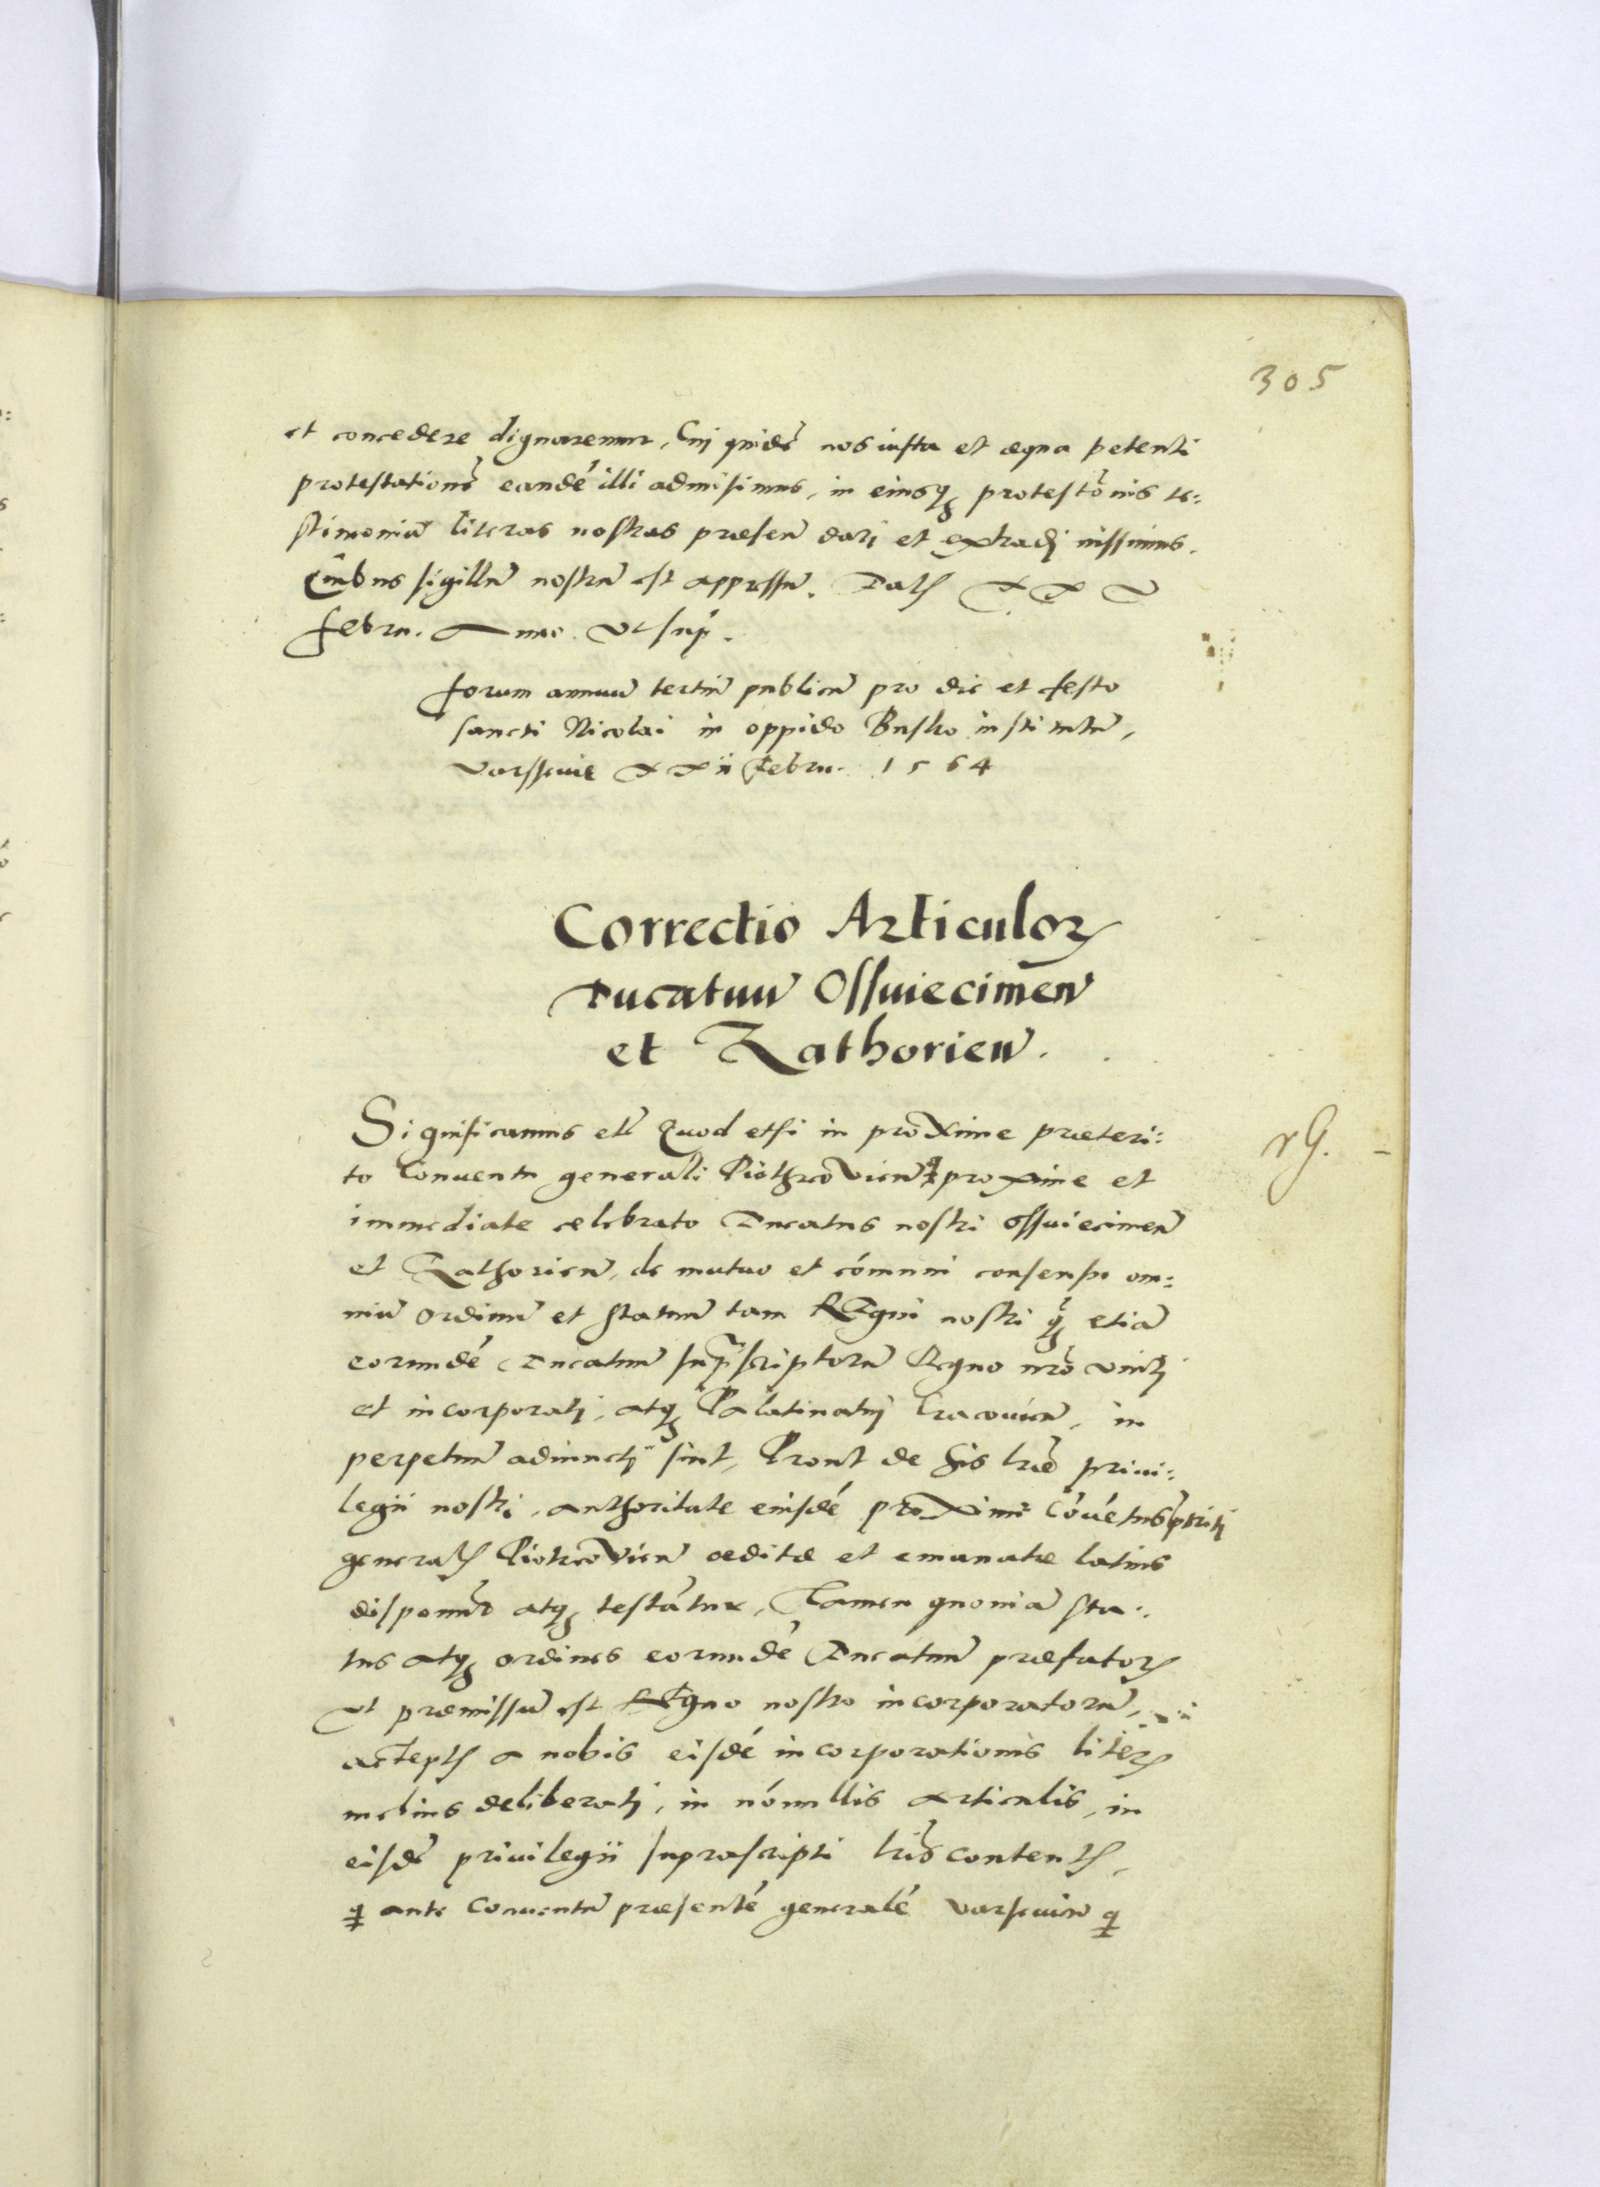 305
et concedere dignaremur, Cui quidē nos iusta et æqua petenti
protestationē eandē illi admisimus, in eiusq; protestōnis te:
stimoniū literas nostras præsen dari et extradi iussimus.
Quibus sigillū nostrū est appressū. Datß XX V
febru. Anno. Vt sup̄.
forum annuū tertiū publicū pro die et festo
sancti Nicolai in oppido Busko institutū,
Varssouiæ XXii Febru. 1564
Correctio Articuloꝝ
Ducatuū Osswiecimen
et Zathorien.
rG. -
Significamus etc̄ Quod etsi in proxime præteri:
to Conuentu generali Piothrcovien proxime et
immediate celebrato Ducatus nostri Osswiecimen
et Zathorien, de mutuo et cómuni consensu om:
niū Ordinū et statuū tam Regni nostri q̄ etiā
eorundē Ducatuū sup̄scriptorū Regno nrō vniti
et incorporati, atq; Palatinatui Cracouien, in
perpetuū adiuncti sint, Prout de his lrē priui:
legii nostri, authoritate eiusdē proximi Cōuētus
generalß Piotrcovien æditæ et emanatæ latius
disponūt atq; testātur, Tamen quoniā sta:
tus atq; ordines eorundē Ducatuū præfatoꝝ
Vt præmissū est Regno nostro incorporatorū,
acceptß a nobis eisdē incorporationis literß
melius deliberati, in nónullis articulis, in
eisdē priuilegii suprascripti lris contentß,
ante Conuentū præsentē generalē Varssouien